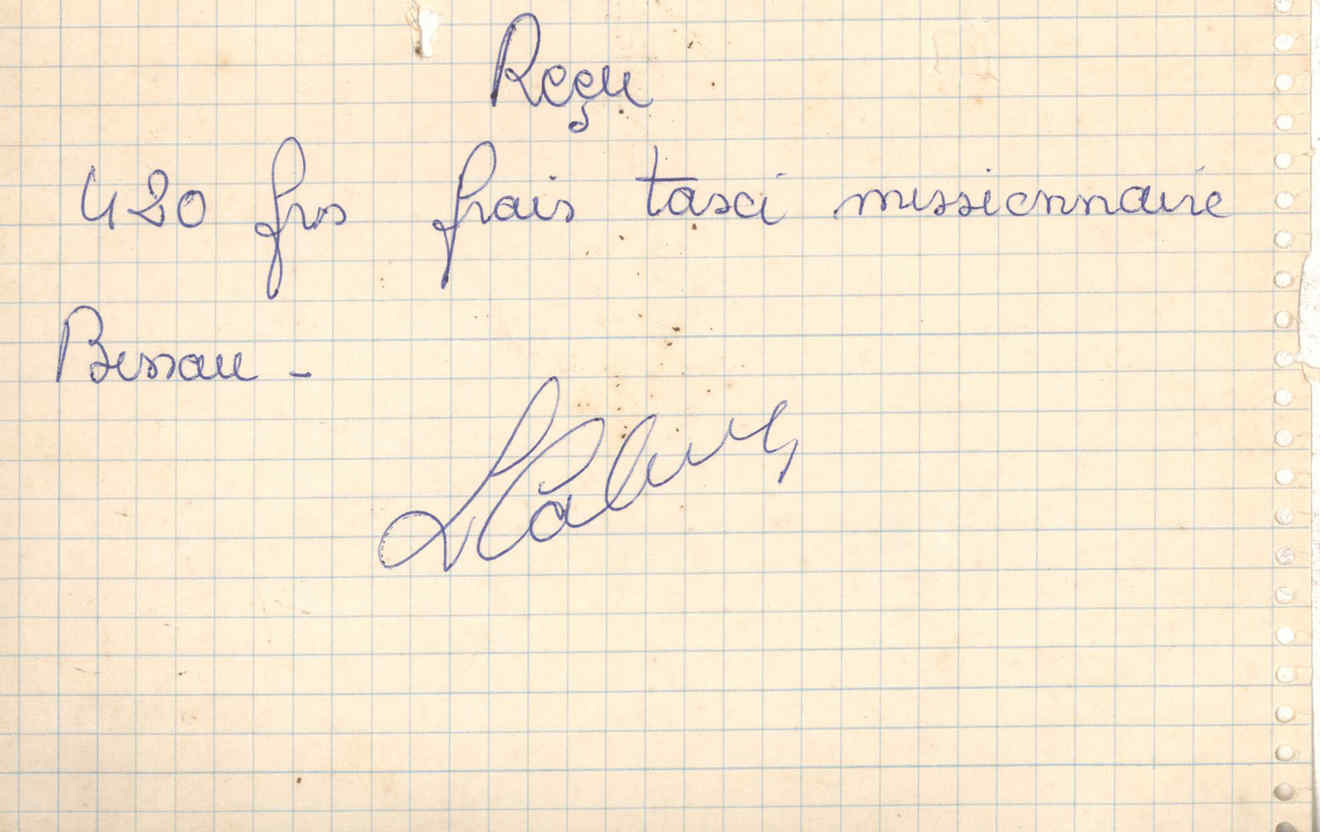 Reçu
420 frs frais taxi missionnaire
Bissau -